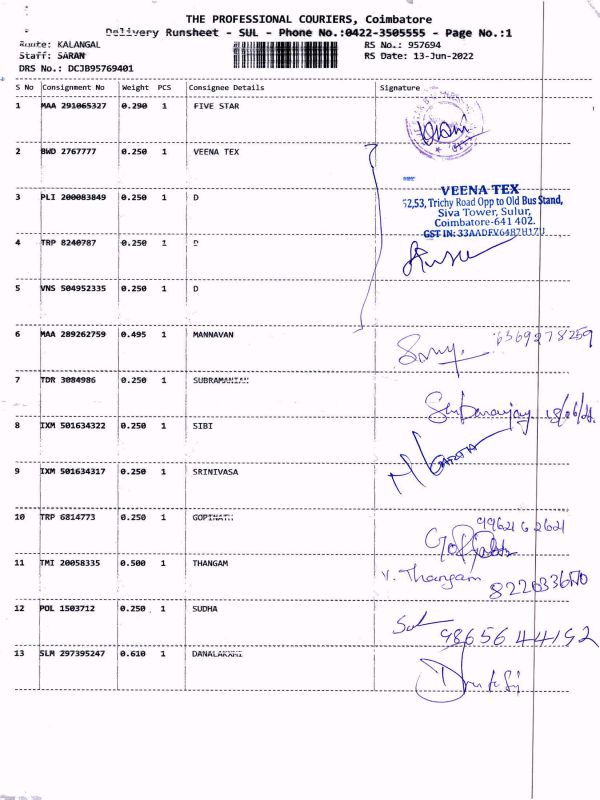 THE PROFESSIONAL COURIERS, Coimbatore
Delivery Runsheet - SUL - Phone No.:0422-3505555 - Page No.:1
Route: KALANGAL RS No.: 957694
Staff: SARAN RS Date: 13-Jun-2022
DRS No.: DCJB95769401
S No Consignment No Weight PCS Consignee Details Signature
1 MAA 291065327 0.290 1 FIVE STAR
2 BWD 2767777 0.250 1 VEENA TEX
VEENA TEX
52,53, Trichy Road Opp to Old Bus Stand,
3 PLI 200083849 0.250 1 D
Siva Tower, Sulur,
Coimbatore-641 402.
GST IN: 33AADFV64R7H1ZU
4 TRP 8240787 0.250 1 D
5 VNS 504952335 0.250 1 D
6 MAA 289262759 0.495 1 MANNAVAN 6369278259
7 TDR 3084986 0.250 1 SUBRAMANIAN
8 IXM 501634322 0.250 1 SIBI
9 IXM 501634317 0.250 1 SRINIVASA
10 TRP 6814773 0.250 1 GOPINATH
11 TMI 20058335 0.500 1 THANGAM V. Thangam
12 POL 1503712 0.250 1 SUDHA
9865644192
13 SLM 297395247 0.610 1 DANALAKXMI